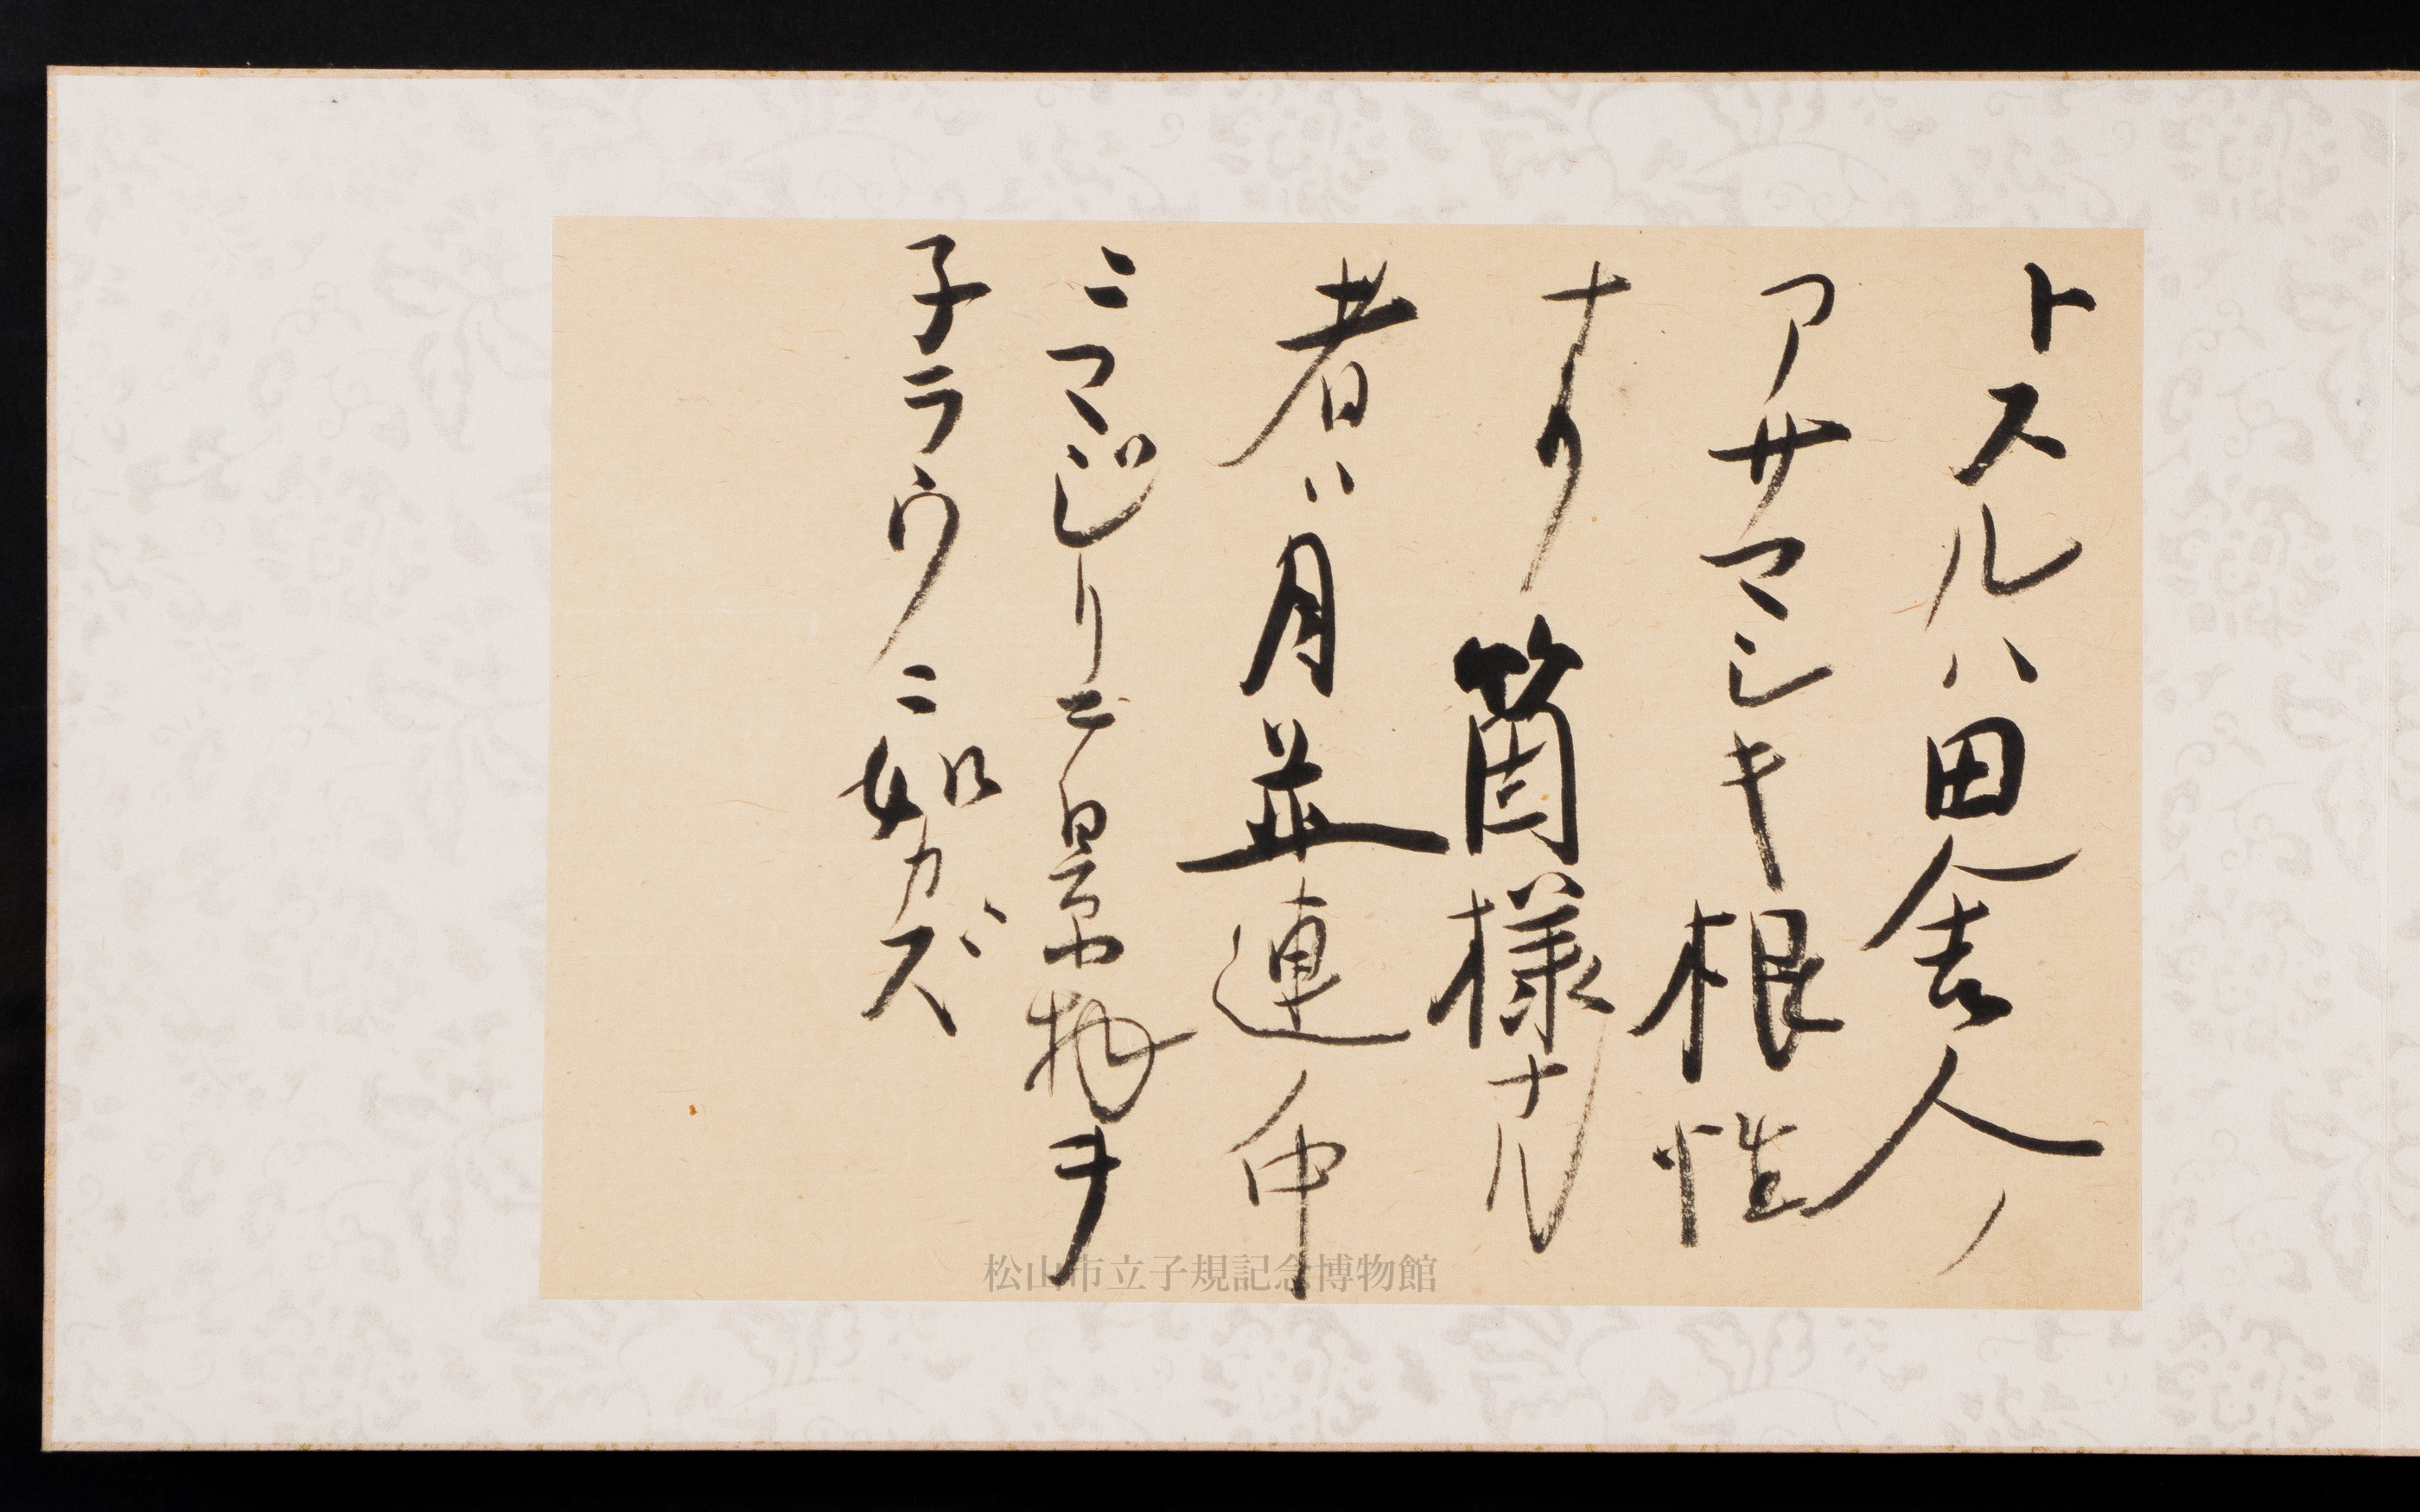 トスルハ田舎人ノ
アサマシキ根性
ナリ箇様ナル
者ハ月並連中
ニマジリテ景物ヲ
子ラウニ如カズ
松山市立子規記念博物館